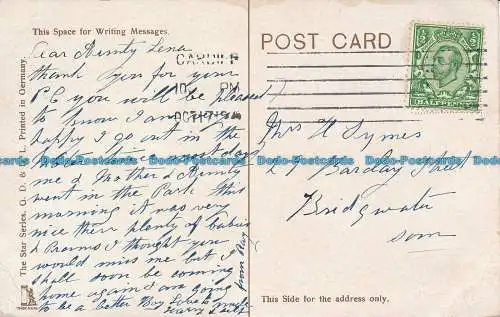 This Space for Writing Messages.
POST CARD
HALFPENNY
CARDIFF
10 PM
OCT 17
Dear Aunty Lena
thank you for your
P C you will be pleased
to know I am
happy I go out in the
me & Mother & Aunty
went in the Park this
morning it was very
nice there plenty of babies
& Prams I thought you
would miss me but I
shall soon be coming
home again I am going
to be a better Boy Love to
from Ray
Mrs H Symes
Barclay Street
Bridgwater
Som
This Side for the address only.
The Star Series. G. D. & D. L. Printed in Germany.
Dodo-Postcards Dodo-Postcards Dodo-Postcards Dodo-Postcards Dodo-Postcards